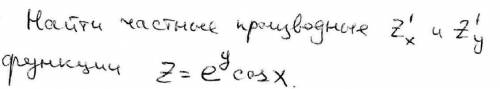 Найти частные производные z'ₓ и z'ᵧ
функции z = eʸ cos x.